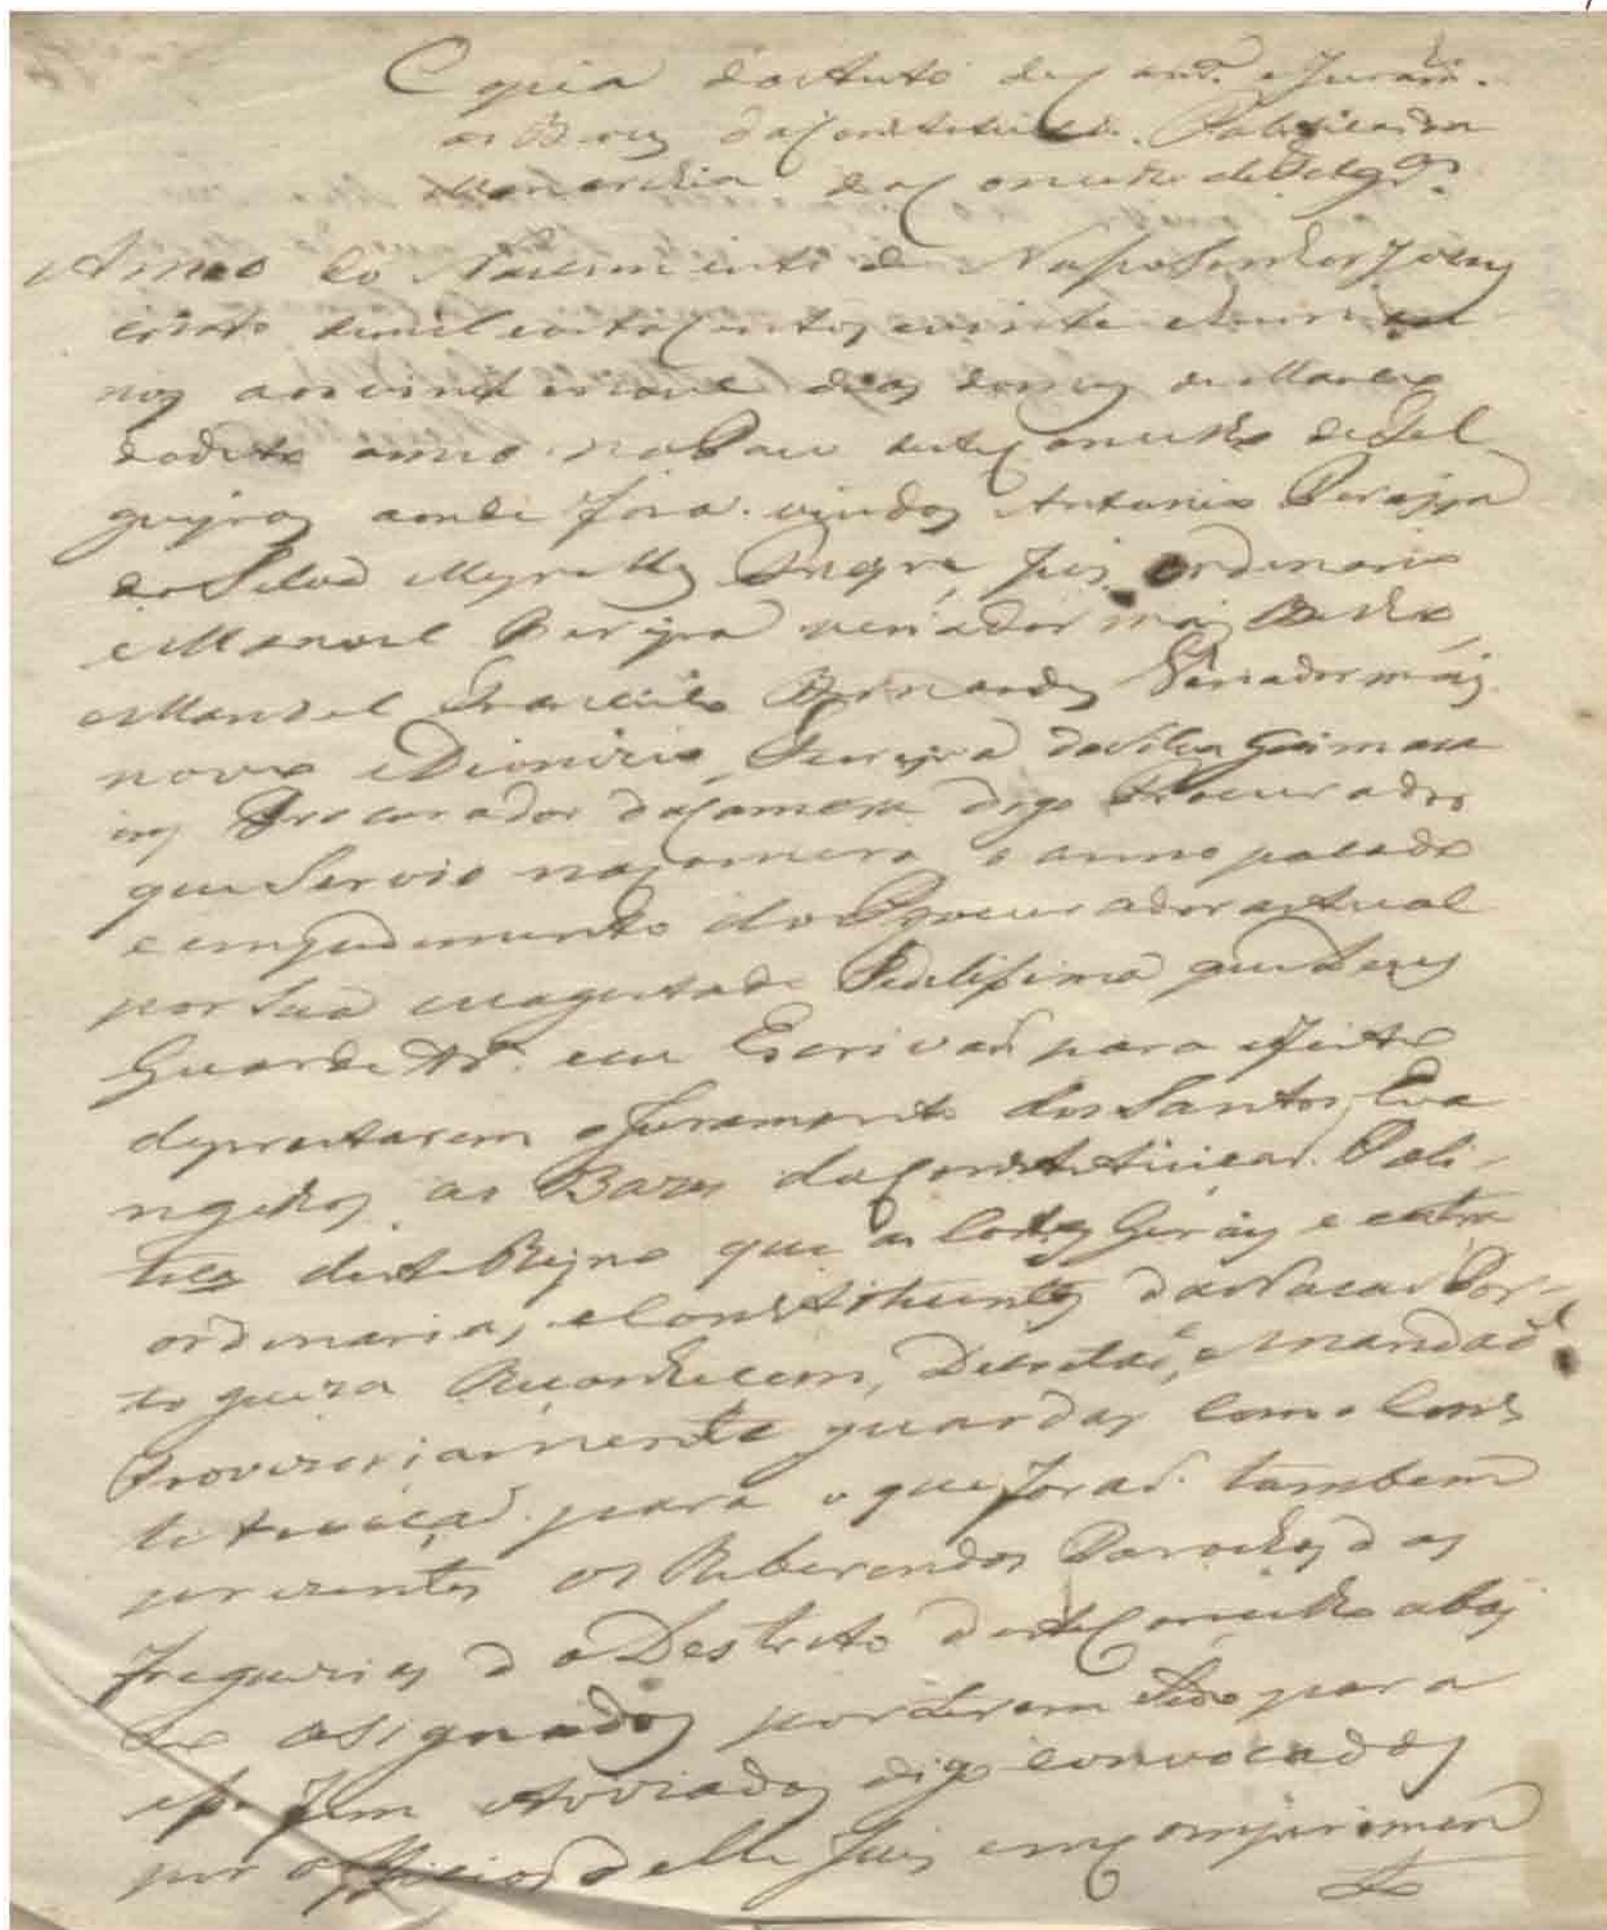 Copia do Auto de Cam.ª e Juram.to
as Bazes da Constituicaõ Politica da
Monarchia do Concelho de Felgr.as
Anno do Nascimento de Nosso Senhor Jezus
cristo de mil eoitoCentos evinte ehum an
nos aos vinte enove dias do mes de Março
dodito anno na Caza deste Concelho de Fel
gueyras aonde foraõ vindos Antonio Pereyra
da Silva Meyrelles Juis ordinario
e Manoel Pereyra veriador mais Velho
e Manoel Bernardes Veriador mais
novo e Dionizio Ferreyra da Silva Guimara
es Procurador da Camera digo Procurador
que Servio na Camera o anno pasado
e empedimento do Procurador actual
por Sua magestade Fidelissima que Deos
Guarde eu Escrivaõ para efeito
de prestarem o Juramento dos Santos Eva
ngelhos as Bazes da Constetuicaõ Poli-
tica deste Reyno que as Cortes Geráis e extra
ordinarias, e Constetuentes da Nacaõ Por-
togueza Reconhecem, Decretaõ, e Mandaõ
Provizoriamente guardar como Cons
tetuiçaõ para o que foraõ tambem
prezentes os Reberendos Parochos das
freguezias do Destrito deste Concelho abai
xo asignados por Serem para
esse fim Avizados digo convocados
por officios delle Juis em Comprimen
to